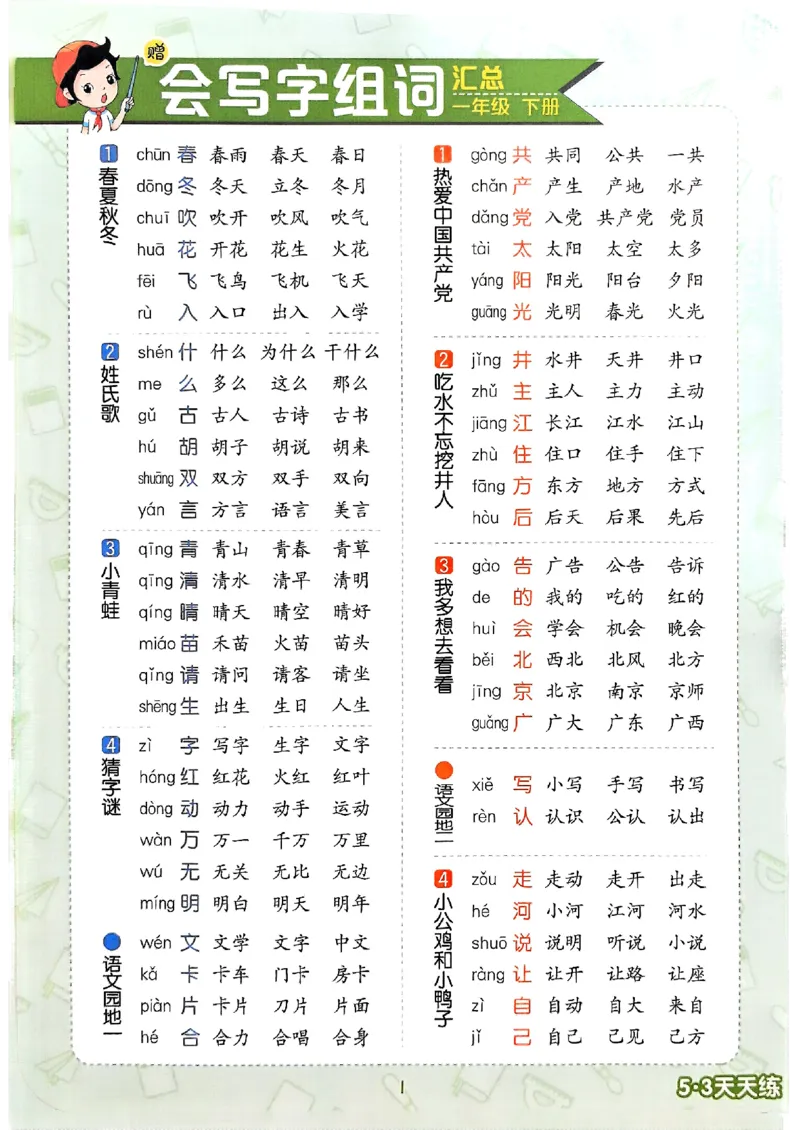 赠
会写字组词
汇总
一年级 下册
1 春夏秋冬
chūn 春 春雨 春天 春日
dōng 冬 冬天 立冬 冬月
chuī 吹 吹开 吹风 吹气
huā 花 开花 花生 火花
fēi 飞 飞鸟 飞机 飞天
rù 入 入口 出入 入学
2 姓氏歌
shén 什 什么 为什么 干什么
me 么 多么 这么 那么
gǔ 古 古人 古诗 古书
hú 胡 胡子 胡说 胡来
shuāng 双 双方 双手 双向
yán 言 方言 语言 美言
3 小青蛙
qīng 青 青山 青春 青草
qīng 清 清水 清早 清明
qíng 晴 晴天 晴空 晴好
miáo 苗 禾苗 火苗 苗头
qǐng 请 请问 请客 请坐
shēng 生 出生 生日 人生
4 猜字谜
zì 字 写字 生字 文字
hóng 红 红花 火红 红叶
dòng 动 动力 动手 运动
wàn 万 万一 千万 万里
wú 无 无关 无比 无边
míng 明 明白 明天 明年
语文园地一
wén 文 文学 文字 中文
kǎ 卡 卡车 门卡 房卡
piàn 片 卡片 刀片 片面
hé 合 合力 合唱 合身
1 热爱中国共产党
gòng 共 共同 公共 一共
chǎn 产 产生 产地 水产
dǎng 党 入党 共产党 党员
tài 太 太阳 太空 太多
yáng 阳 阳光 阳台 夕阳
guāng 光 光明 春光 火光
2 吃水不忘挖井人
jǐng 井 水井 天井 井口
zhǔ 主 主人 主力 主动
jiāng 江 长江 江水 江山
zhù 住 住口 住手 住下
fāng 方 东方 地方 方式
hòu 后 后天 后果 先后
3 我多想去看看
gào 告 广告 公告 告诉
de 的 我的 吃的 红的
huì 会 学会 机会 晚会
běi 北 西北 北风 北方
jīng 京 北京 南京 京师
guǎng 广 广大 广东 广西
语文园地二
xiě 写 小写 手写 书写
rèn 认 认识 公认 认出
4 小公鸡和小鸭子
zǒu 走 走动 走开 出走
hé 河 小河 江河 河水
shuō 说 说明 听说 小说
ràng 让 让开 让路 让座
zì 自 自动 自大 来自
jǐ 己 自己 己见 己方
1
5·3天天练